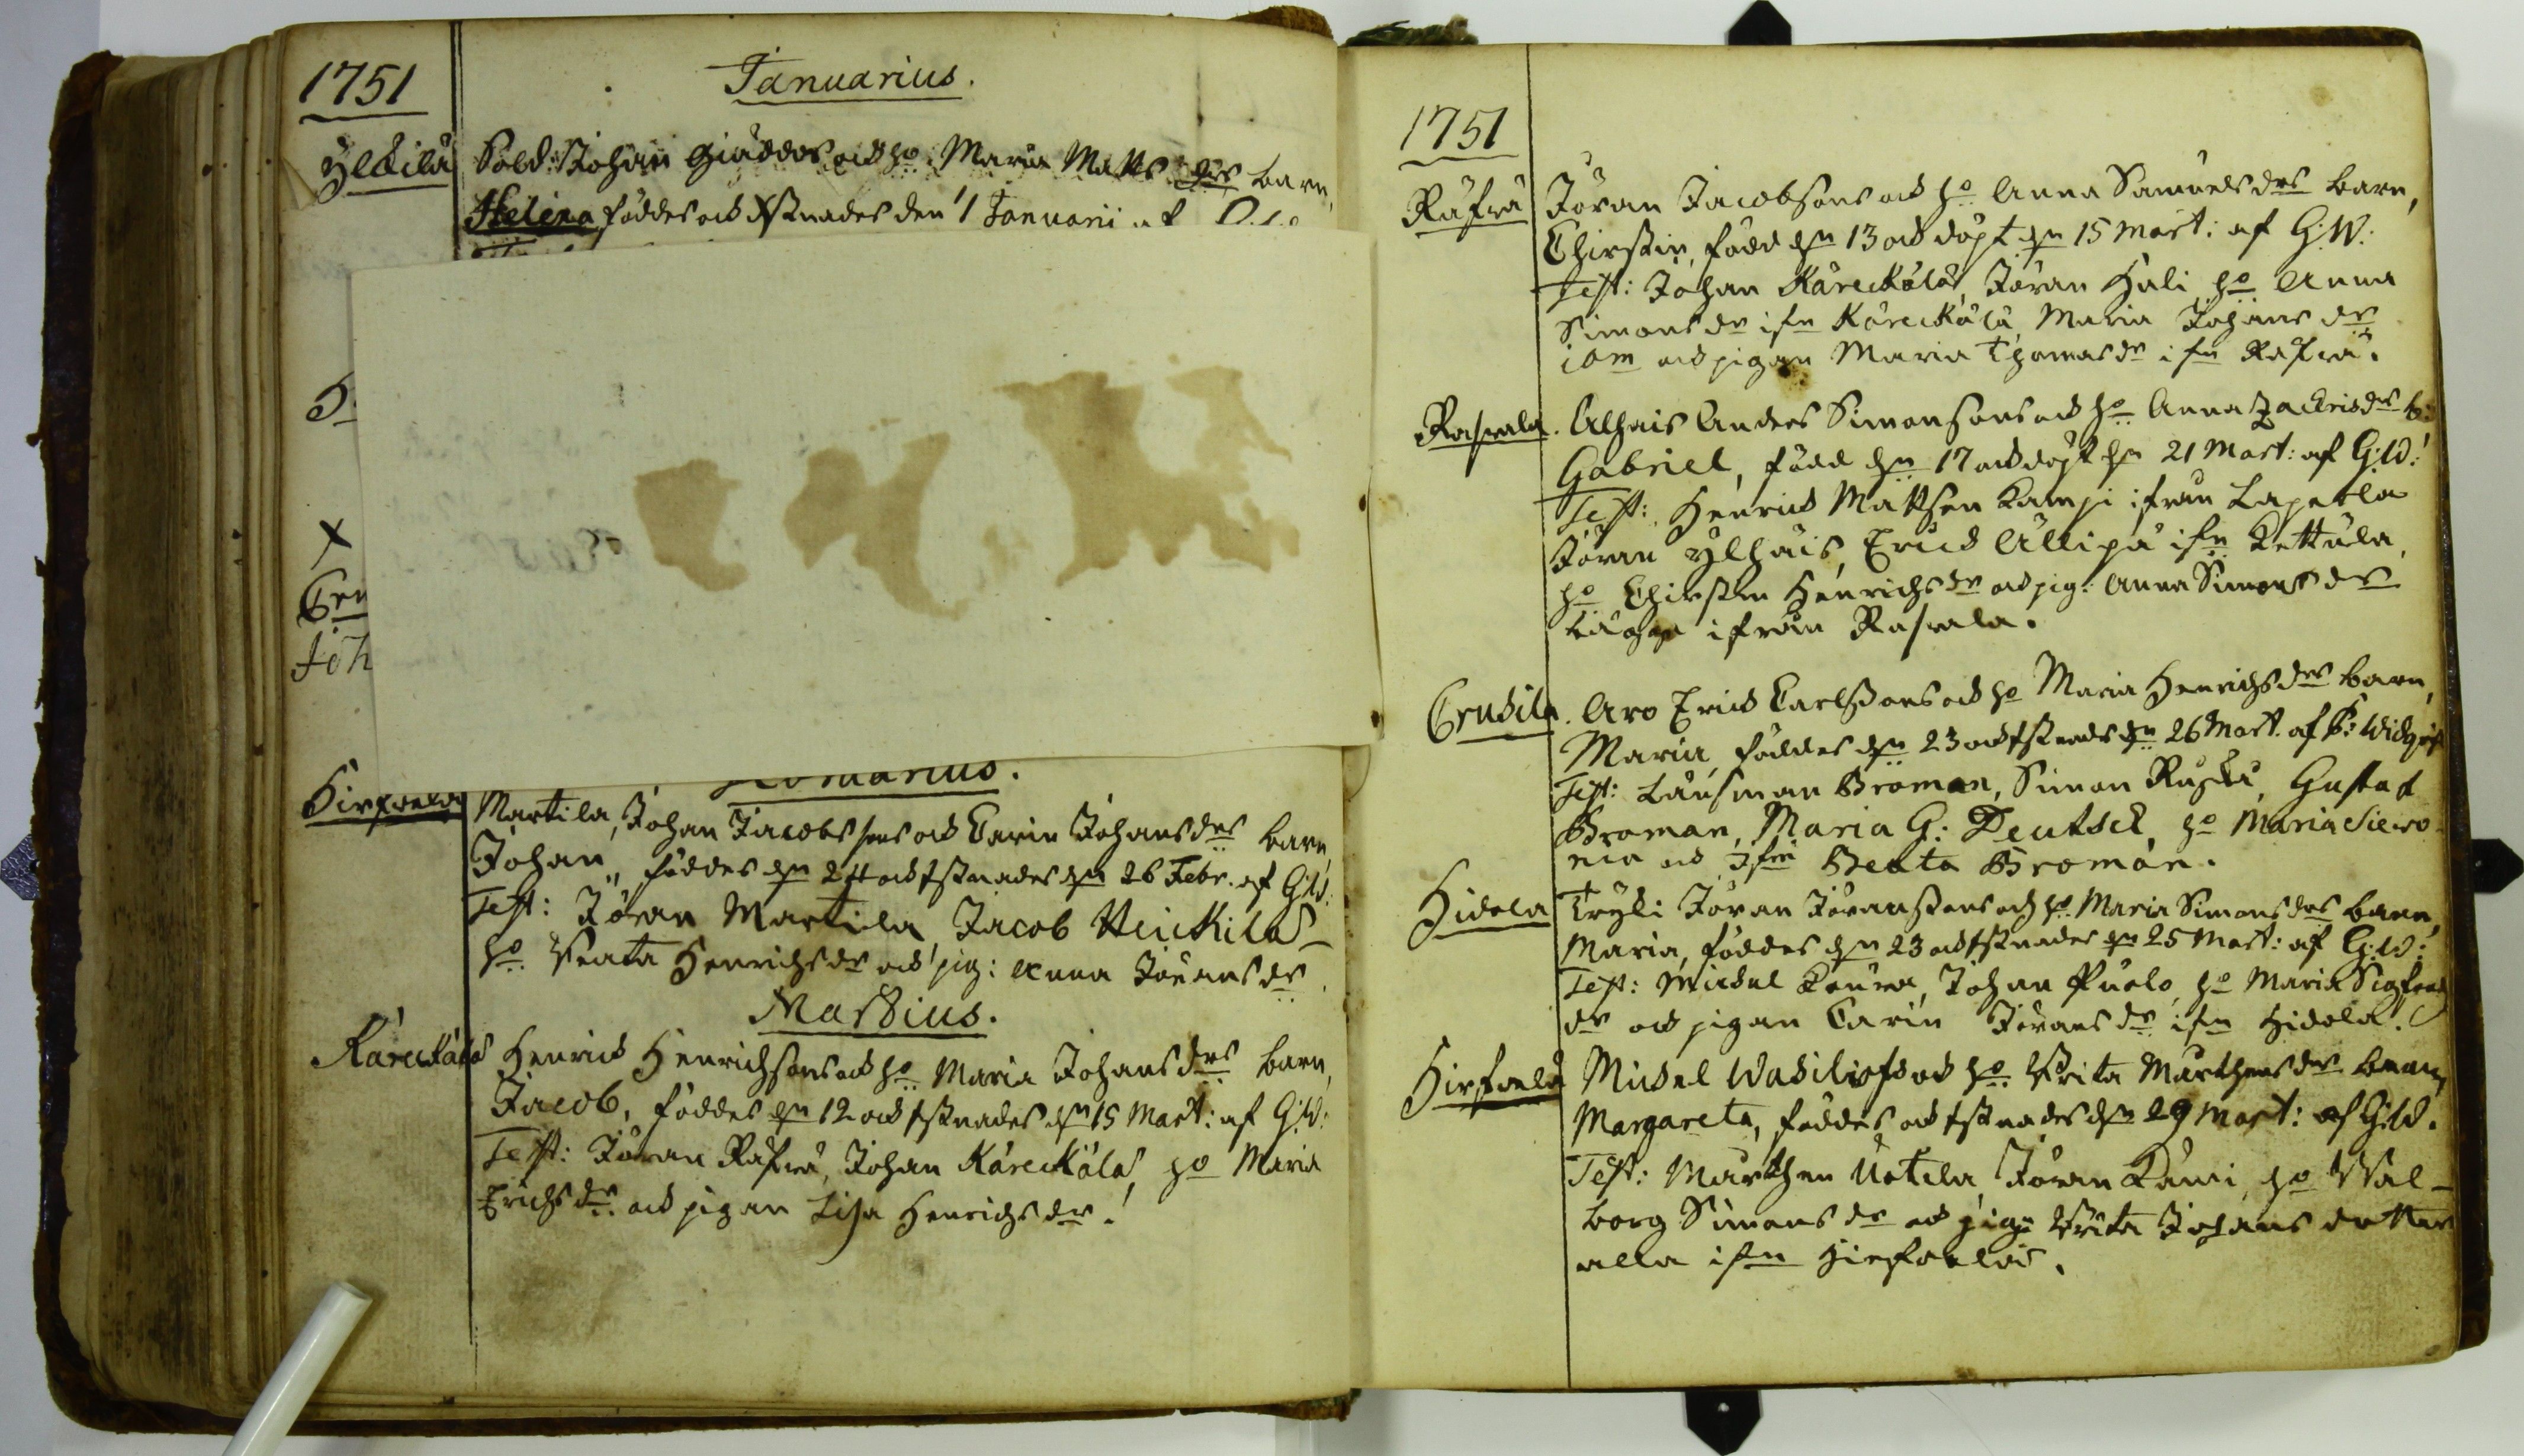 1751
Januarius.
Yldila Sold: Johan Giäddas och ho Maria Matts drs barn,
Helena föddes och Xstnades den 1 Januarii af
X
Hirfvela Martila, Johan Jacobs sons och Carin Johansdrs barn,
Johan, föddes dn 24 och xstnades dn 26 Febr. af G:W:
Test: Jöran Martila, Jacob Heickilä
ho Beata Henrichs dr och pig: Anna Jöransdr
Martius.
Käreckälä Henrich Henrichsons och ho Maria Johansdrs barn,
Jacob, föddes dn 12 och xstnades dn 15 Mart: af G:W:
Test: Jöran Räfvä, Johan Käreckälä, ho Maria
Erichs dr och pigan Lisa Henrichs dr.
1751
Räfvä Jöran Jacobsons och ho Anna Samuelsdrs barn,
Chirstin, född dn 13 och döpt dn 15 Mart: af G:W:
Test: Johan Käreckälä, Jöran Hali, ho Anna
Simonsdr ifn Käreckälä, Maria Johans dr
och pigan Maria Thomasdr ifn Räfvä.
Rasvala. Alhais Anders Simonsons och ho Anna Zachrisdrs b:
Gabriel, född dn 17 och döpt dn 21 Mart: af G:W:
Test: Henrich Mattson Kampi ifrån Lapexla
Jöran Ylhäis, Erich Ällipä ifn Kettula,
ho Chirstin Henrichsdr och pig: Anna Simonsdr
bägge ifrån Rasvala.
Crudila. Aro Erich Carlssons och ho Maria Henrichsdrs barn,
Maria, föddes dn 23 och xstnads dn 26 Mart. af
Test: Länsman Broman, Simon Ruski, Gustaf
Broman, Maria G: Deutsch, ho Maria Siero-
nia och Jfru Beata Broman.
Hidola Tryki Jöran Jöranssons och ho Maria Simonsdrs barn,
Maria, föddes dn 23 och xstnades dn 25 Mart: af G:W:
Test: Michel Koura, Johan Puolo, ho Maria Sigfreds
dr och pigan Carin Jöransdr ifn Hidola.
Hirfvela Michel Wasiliofs och ho Brita Mårthensdrs barn,
Margareta, föddes och xstnades dn 29 Mart: af G:W.
Test: Mårthen Uotila, Jöran Kämi, ho Wal-
borg Simonsdr och pig: Brita Johans dotter
alla ifn Hirfvelä.